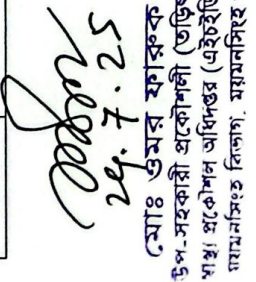 ২৭.7.25
মোঃ ওমর ফারুক
উপ-সহকারী প্রকৌশলী
স্বাস্থ্য প্রকৌশল অধিদপ্তর
ময়মনসিংহ বিভাগ, ময়মনসিংহ